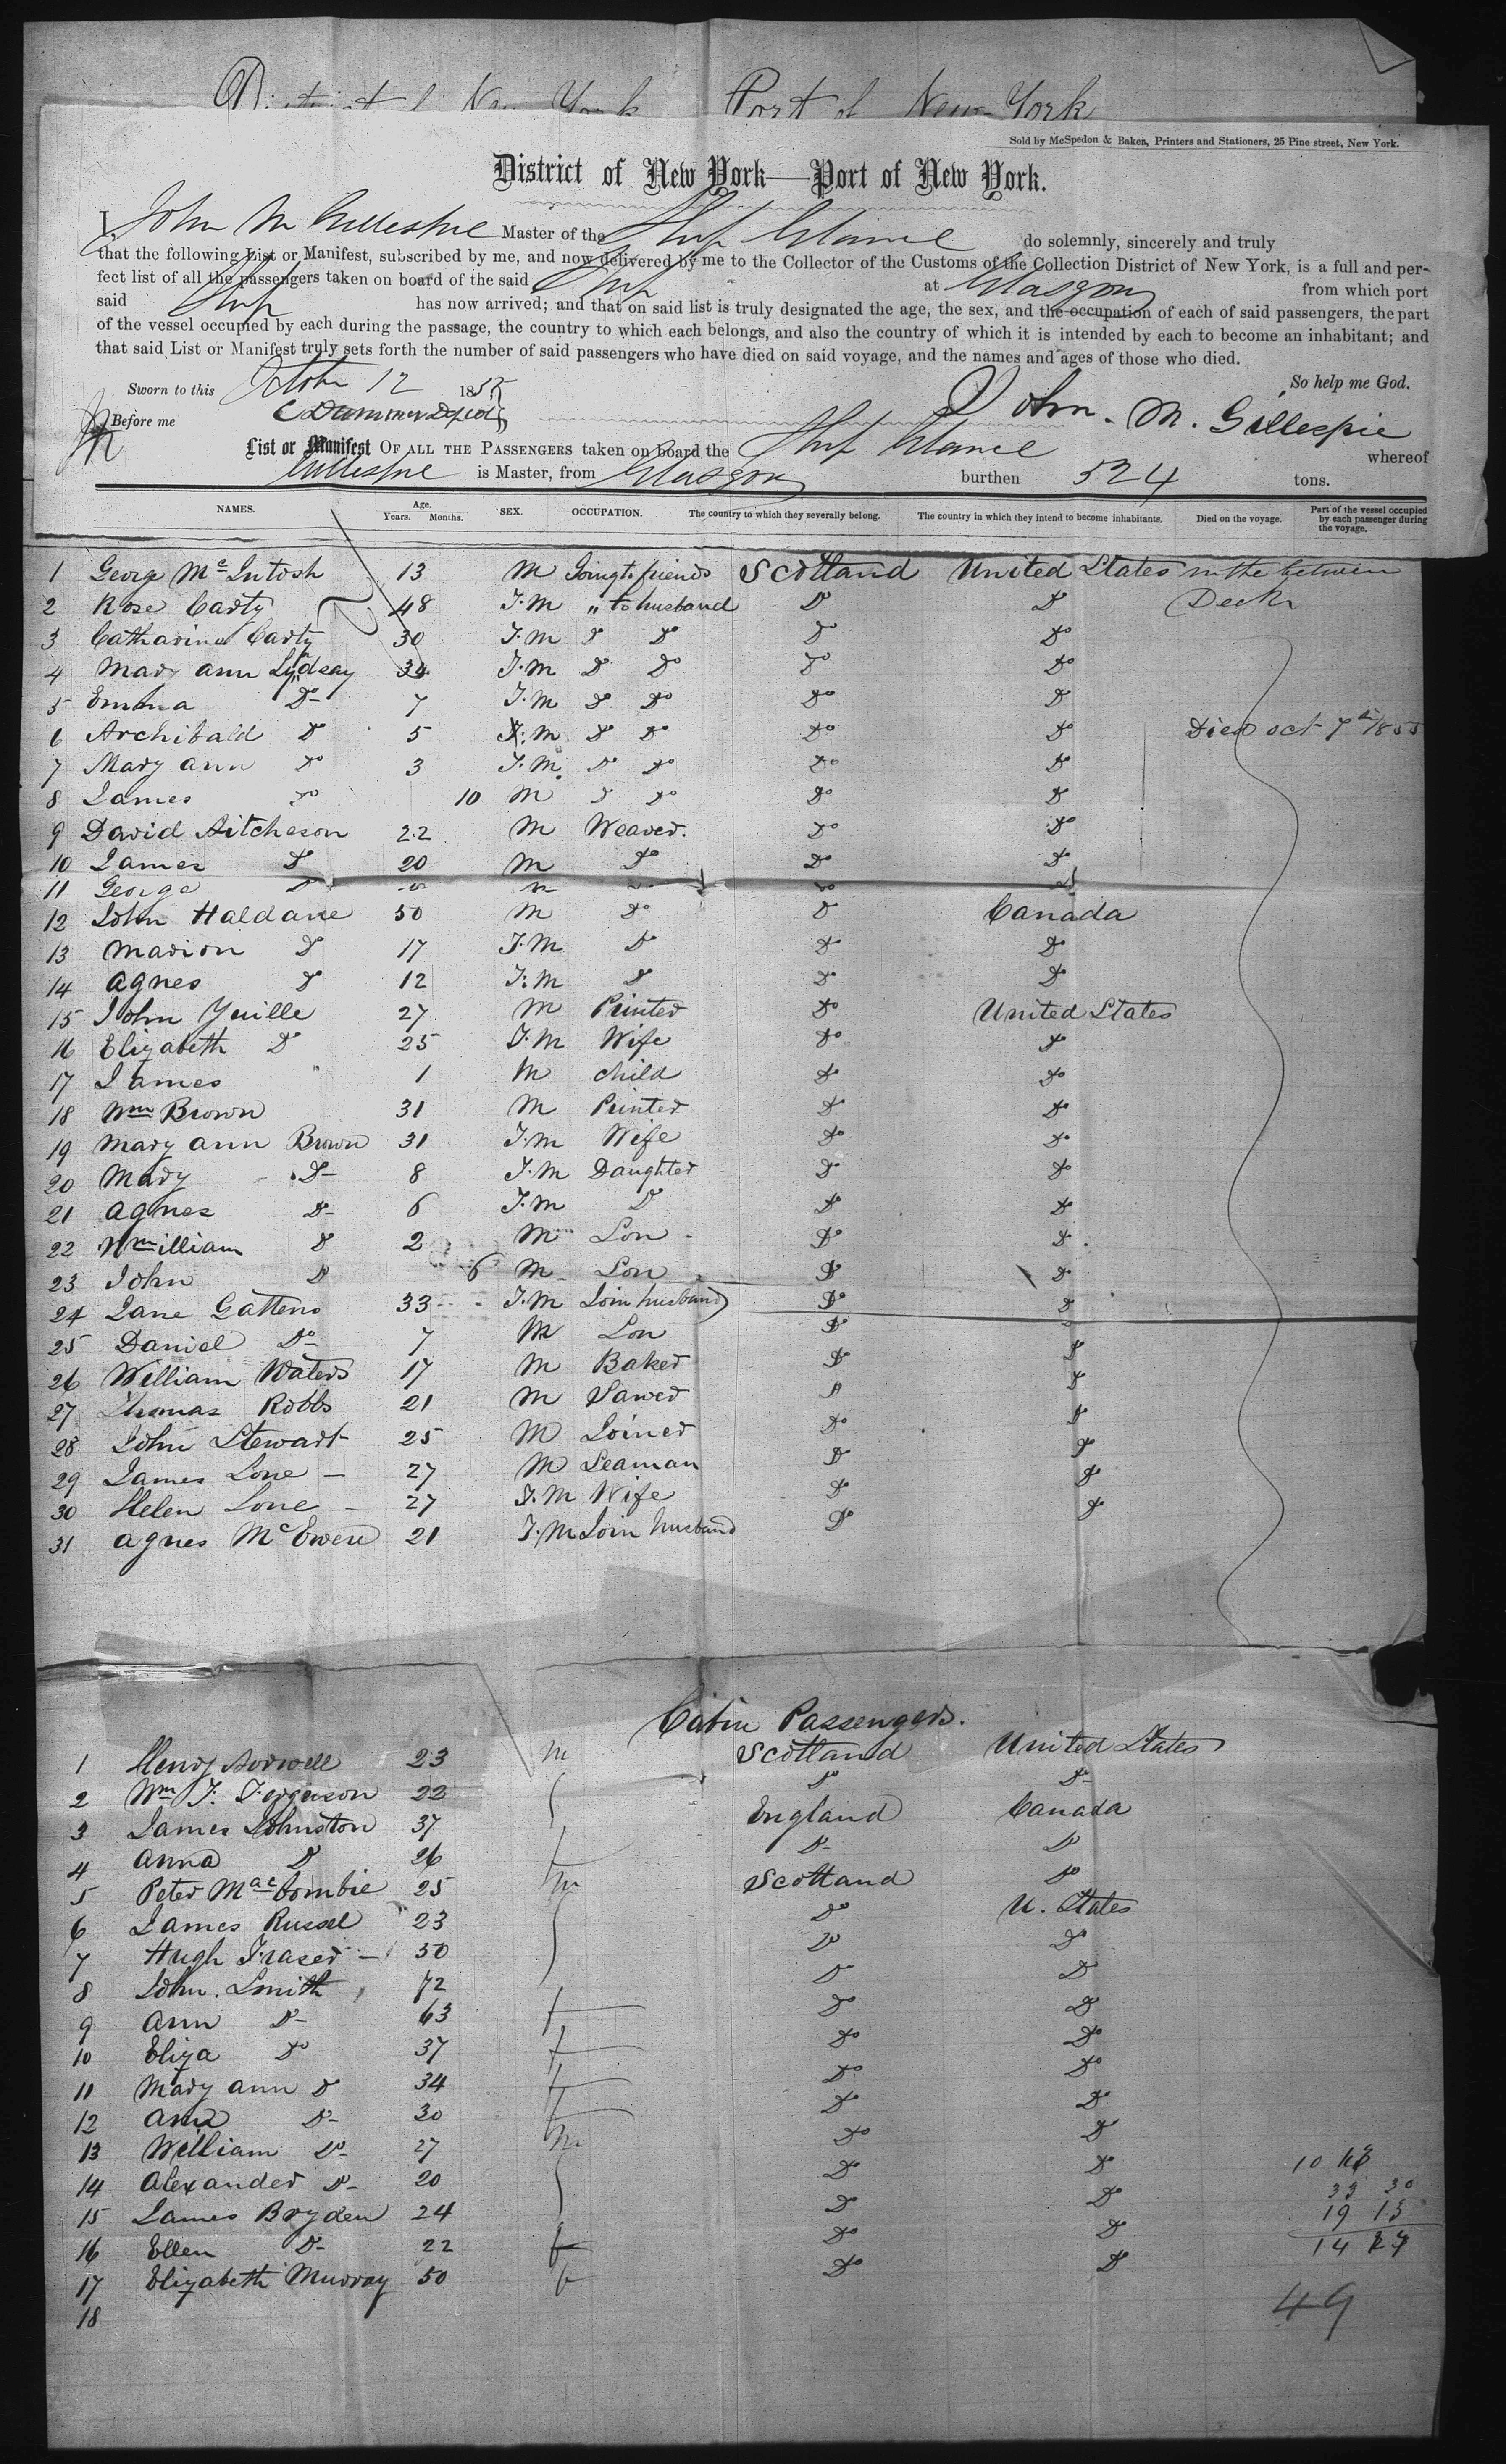 District of New York Port of New-York
Sold by McSpedon & Baker, Printers and Stationers, 25 Pine street, New York.
District of New York—Port of New York.
I, John M Gillespie Master of the Ship do solemnly, sincerely and truly
that the following List or Manifest, subscribed by me, and now delivered by me to the Collector of the Customs of the Collection District of New York, is a full and per-
fect list of all the passengers taken on board of the said Ship at Glasgow from which port
said Ship has now arrived; and that on said list is truly designated the age, the sex, and the occupation of each of said passengers, the part
of the vessel occupied by each during the passage, the country to which each belongs, and also the country of which it is intended by each to become an inhabitant; and
that said List or Manifest truly sets forth the number of said passengers who have died on said voyage, and the names and ages of those who died.
Sworn to this October 12 1855 So help me God.
Before me John. M. Gillespie
List or Manifest OF ALL THE PASSENGERS taken on board the Ship whereof
Gillespie is Master, from Glasgow burthen 524 tons.
NAMES. Age. Years. Months. SEX. OCCUPATION. The country to which they severally belong. The country in which they intend to become inhabitants. Died on the voyage. Part of the vessel occupied by each passenger during the voyage.
1 George McIntosh 13 M Going to friends Scotland United States in the between
2 Rose Carty 48 F.M " to husband Do Do Deck
3 Catharine Carty 30 F.M Do Do Do Do
4 Mary ann Lyndsay 34 F.M Do Do Do Do
5 Emma Do 7 F.M Do Do Do Do
6 Archibald Do 5 M Do Do Do Do Died oct 7th 1855
7 Mary ann Do 3 F.M. Do Do Do Do
8 James Do 10 M Do Do Do Do
9 David Aitcheson 22 M Weaver. Do Do
10 James Do 20 M Do Do Do
11 George Do M Do Do Do
12 John Haldane 50 M Do Do Canada
13 Marion Do 17 F.M Do Do Do
14 Agnes Do 12 F.M Do Do Do
15 John Yuille 27 M Printer Do United States
16 Elizabeth Do 25 F.M Wife Do Do
17 James " 1 M child Do Do
18 Wm Brown 31 M Printer Do Do
19 Mary ann Brown 31 F.M Wife Do Do
20 Mary Do 8 F.M Daughter Do Do
21 Agnes Do 6 F.M Do Do Do
22 Wmilliam Do 2 M Son Do Do
23 John Do 6 M Son Do Do
24 Jane Gattens 33 F.M Join husband Do Do
25 Daniel Do 7 M Son Do Do
26 William Waters 17 M Baker Do Do
27 Thomas Robbs 21 M Sawer Do Do
28 John Stewart 25 M Joiner Do Do
29 James Lone 27 M Seaman Do Do
30 Helen Lone 27 F.M Wife Do Do
31 Agnes McEwen 21 F.M Join husband Do Do
Cabin Passengers.
1 Henry 23 m Scotland United States
2 Wm F. Ferguson 22 Do Do
3 James Johnston 37 England Canada
4 Anna Do 26 f Do Do
5 Peter MacCombie 25 m Scotland Do
6 James Russel 23 Do U. States
7 Hugh Fraser 30 Do Do
8 John. Smith 72 Do Do
9 Ann Do 63 f Do Do
10 Eliza Do 37 f Do Do
11 Mary ann Do 34 f Do Do
12 Ann Do 30 f Do Do
13 William Do 27 m Do Do
14 Alexander Do 20 Do Do
15 James Bryden 24 Do Do
16 Ellen Do 22 f Do Do
17 Elizabeth Murray 50 f Do Do
18
10
33 30
19 13
14
49